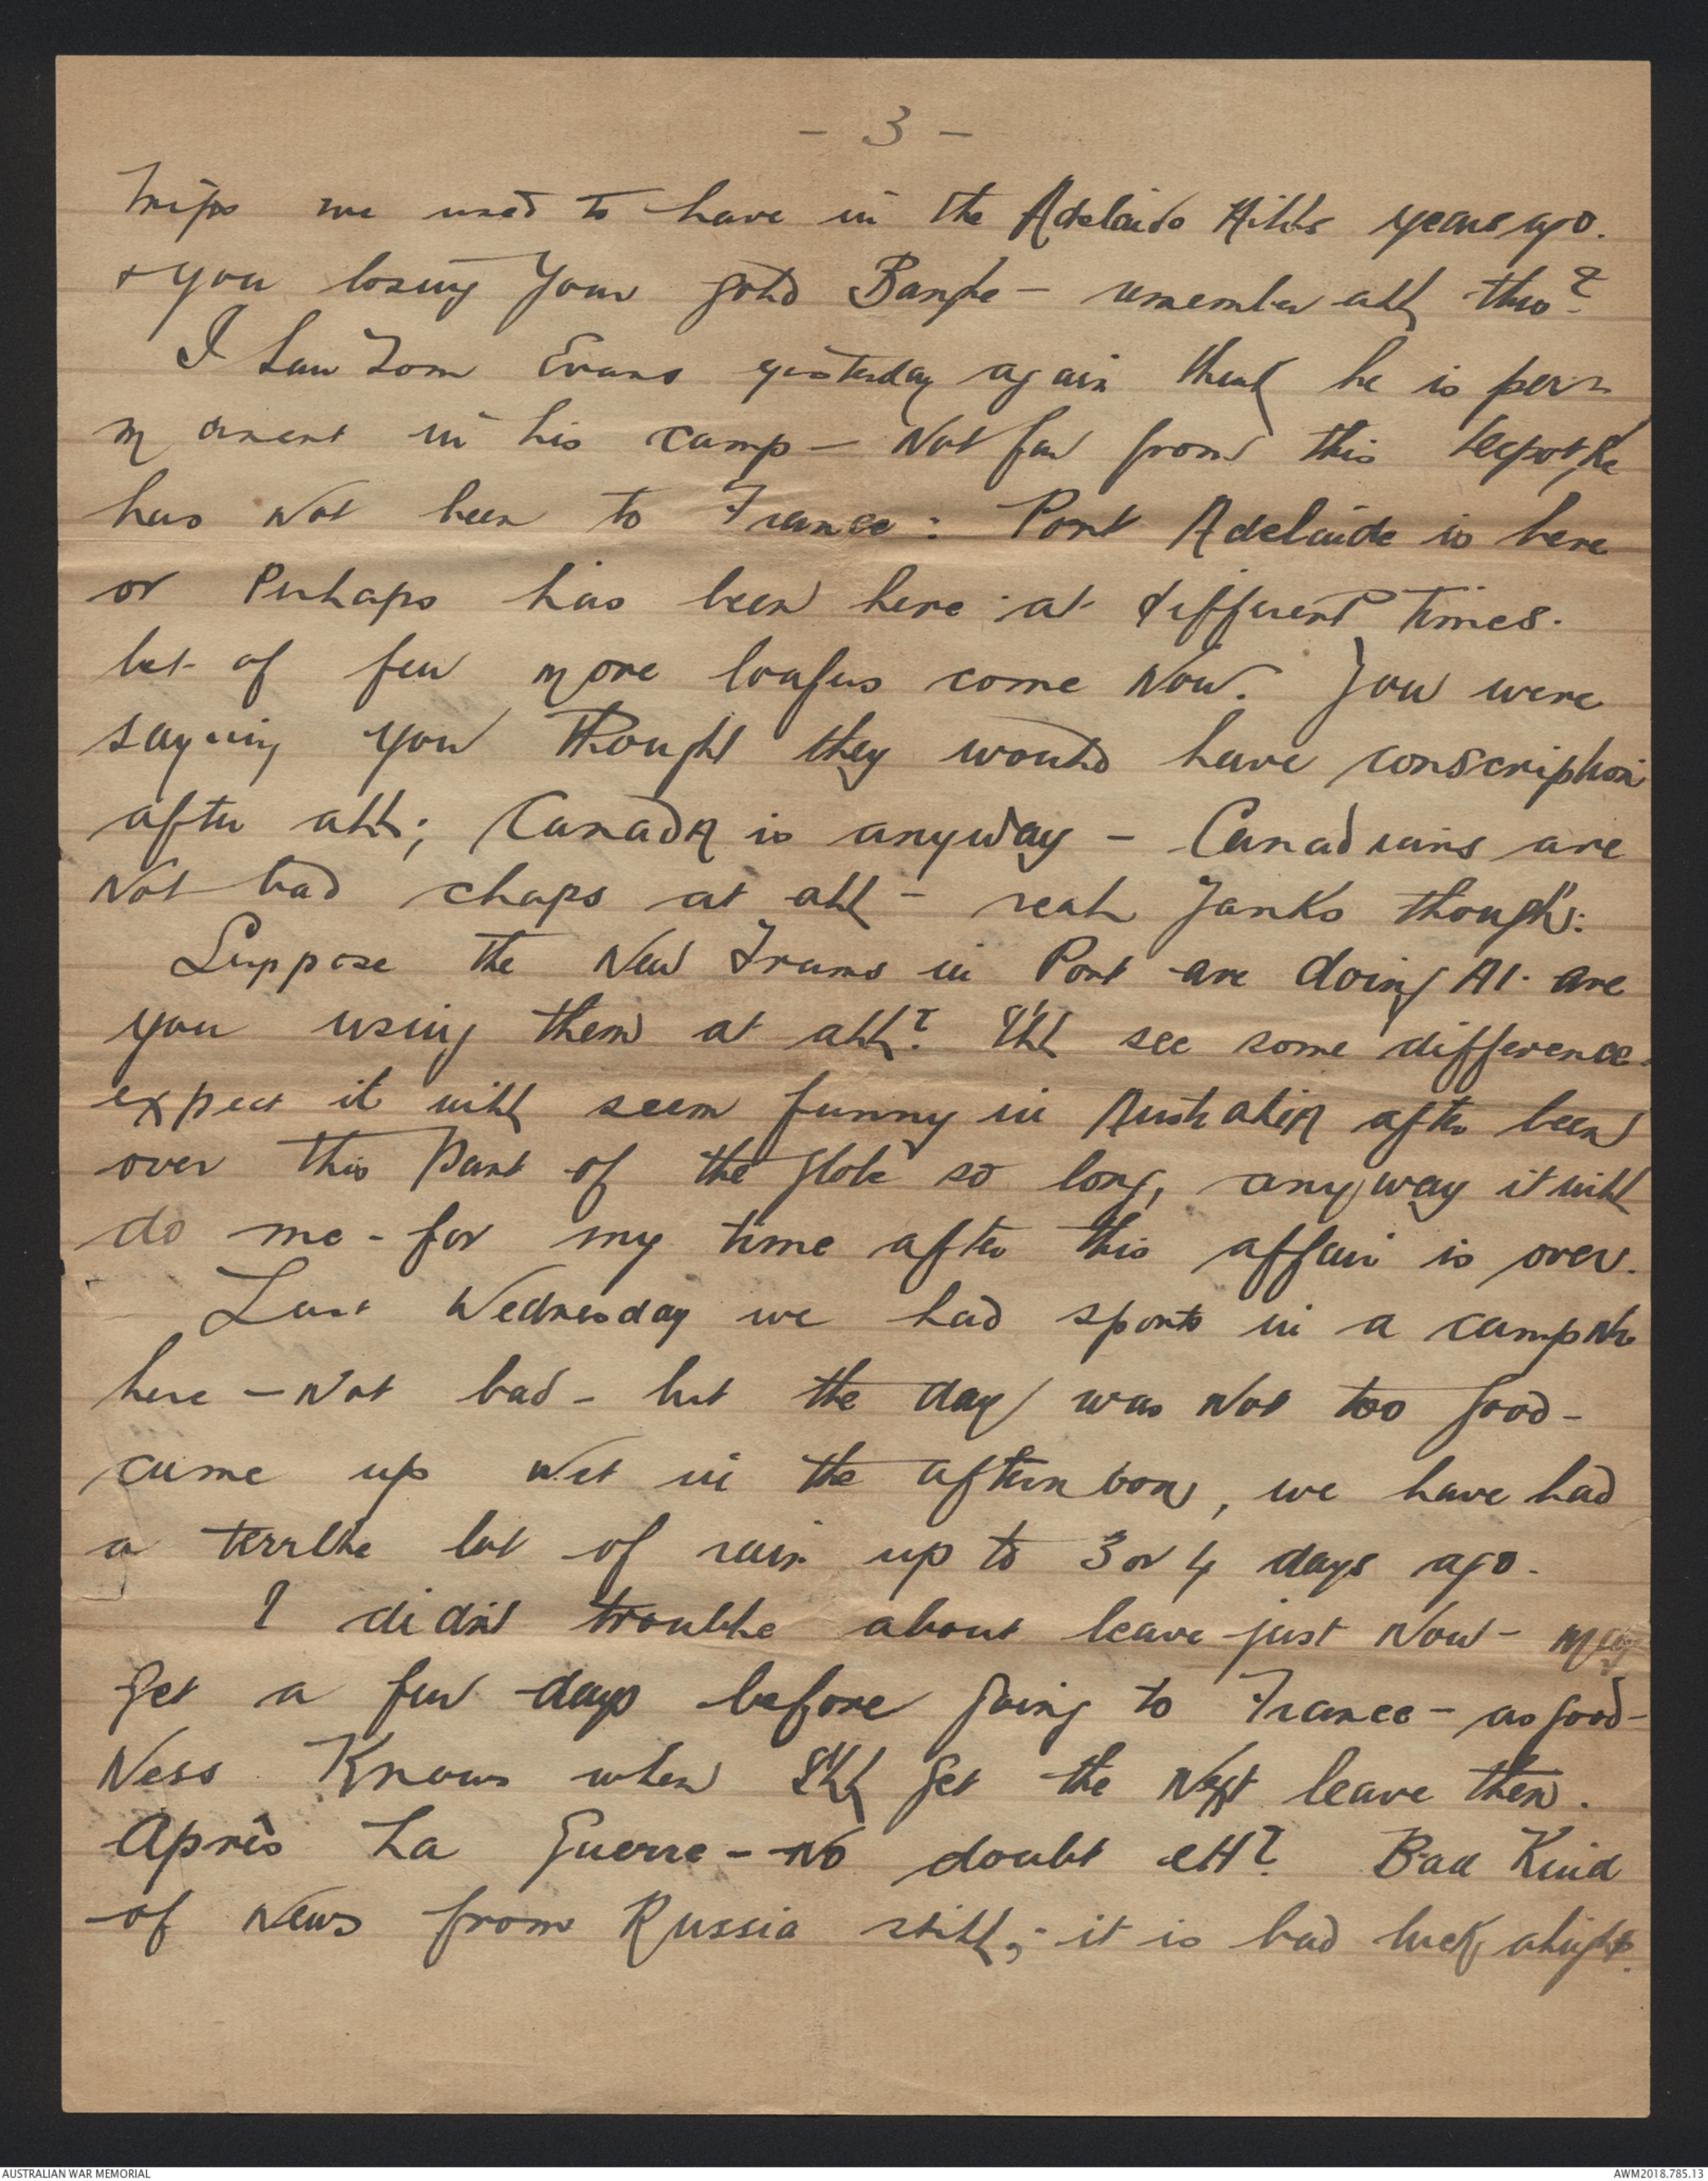 - 3 -
trips we used to have in the Adelaide Hills years ago.
& you losing your gold Bangle - remember all this?
I saw Tom Evans yesterday again think he is per=
manent in his camp - Not far from this depot, he
has Not been to France: Port Adelaide is here
or Perhaps has been here at different times.
let of few more loafers come Now. You were
saying you Thought they would have conscription
after all; CanadA is anyway - Canadians are
Not bad chaps at all - real Yanks though:
Suppose the New Trams in Port are doing A1. are
you using them at all? I'll see some difference.
expect it will seem funny in AustraliA after been
over this Part of the globe so long, anyway it will
do me - for my time after this affair is over.
Last Wednesday we had sports in a camp Nr
here - Not bad - but the day was Not too good -
came up wet in the afternoon, we have had
a terrible lot of rain up to 3 or 4 days ago.
I didn't trouble about leave just Now - may
get a few days before going to France - as good-
Ness Knows when I'll get the Next leave then.
Après La Guerre - No doubt eH? Bad Kind
of News from Russia still; it is bad luck alright.
AUSTRALIAN WAR MEMORIAL
AWM2018.785.13